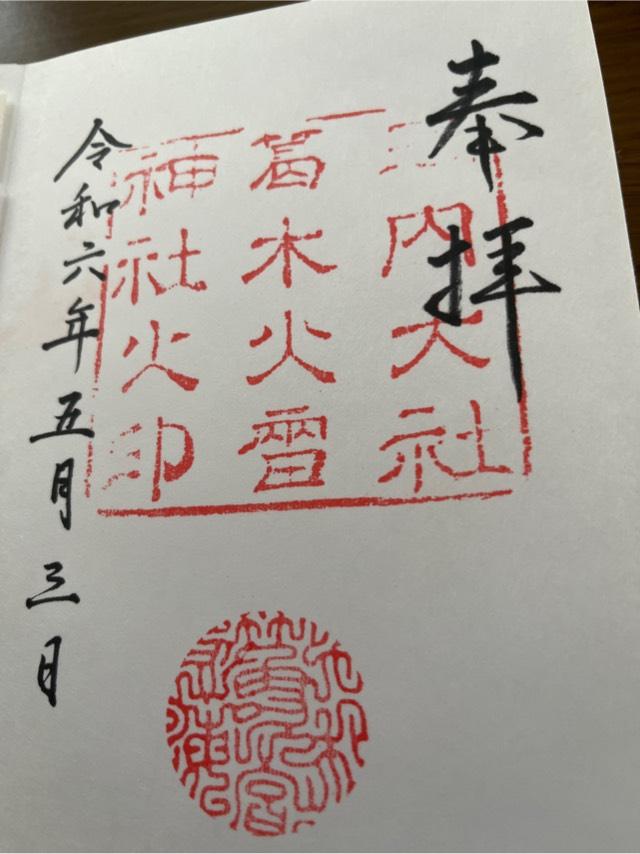 奉拝
内大社
葛木火雷
神社火印
令和六年五月三日